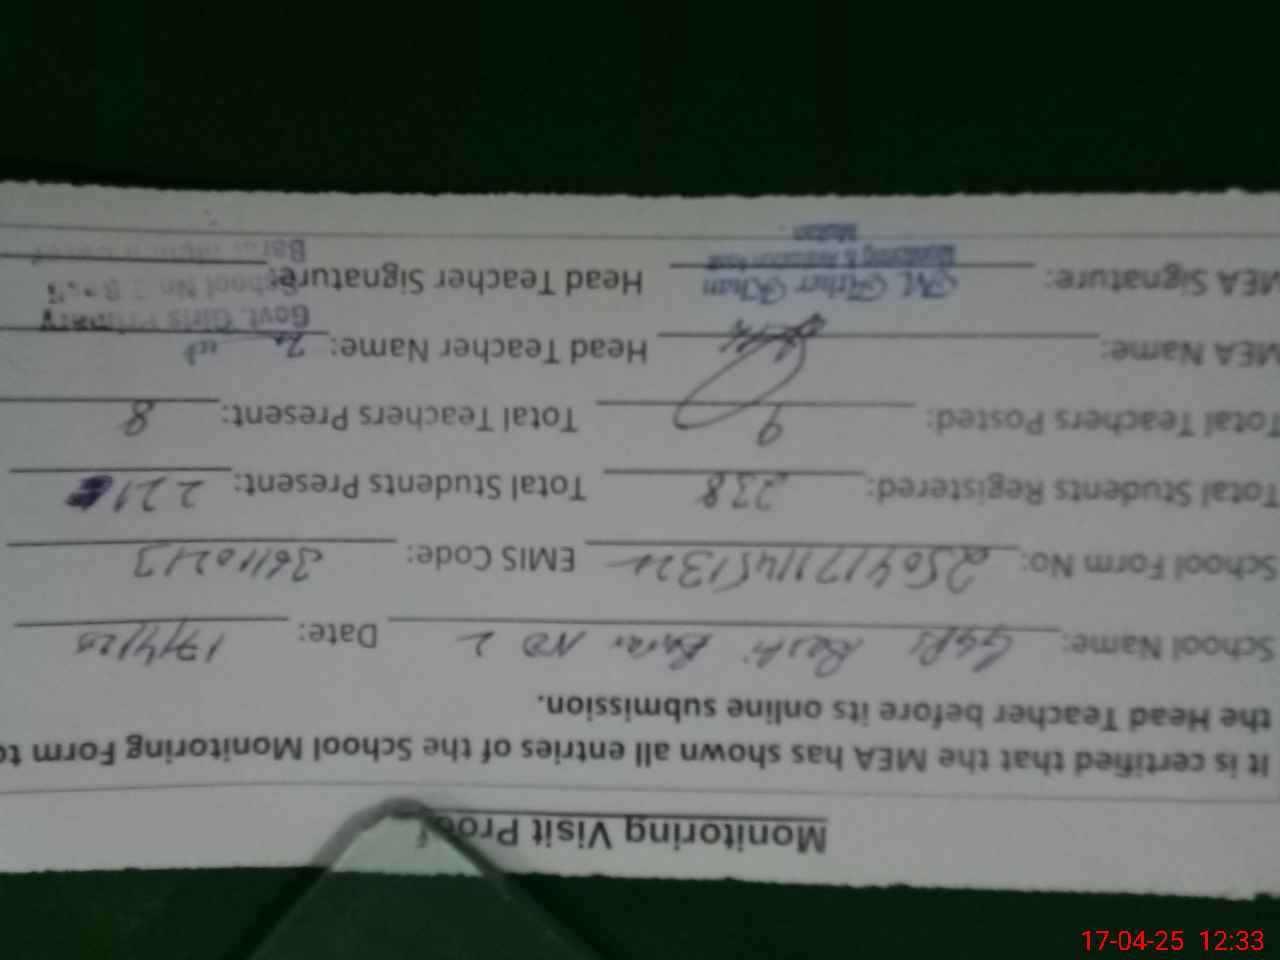 Monitoring Visit Proof
It is certified that the MEA has shown all entries of the School Monitoring Form to
the Head Teacher before its online submission.
School Name: GGPS Basti Barar NO 2 Date: 17/4/25
School Form No: EMIS Code: 36110213
Total Students Registered: 238 Total Students Present: 221
Total Teachers Posted: 9 Total Teachers Present: 8
MEA Name: Head Teacher Name:
Govt. Girls Primary
MEA Signature: M. Ather Khan Head Teacher Signature:
School No. 2
Monitoring & Evaluation
17-04-25 12:33